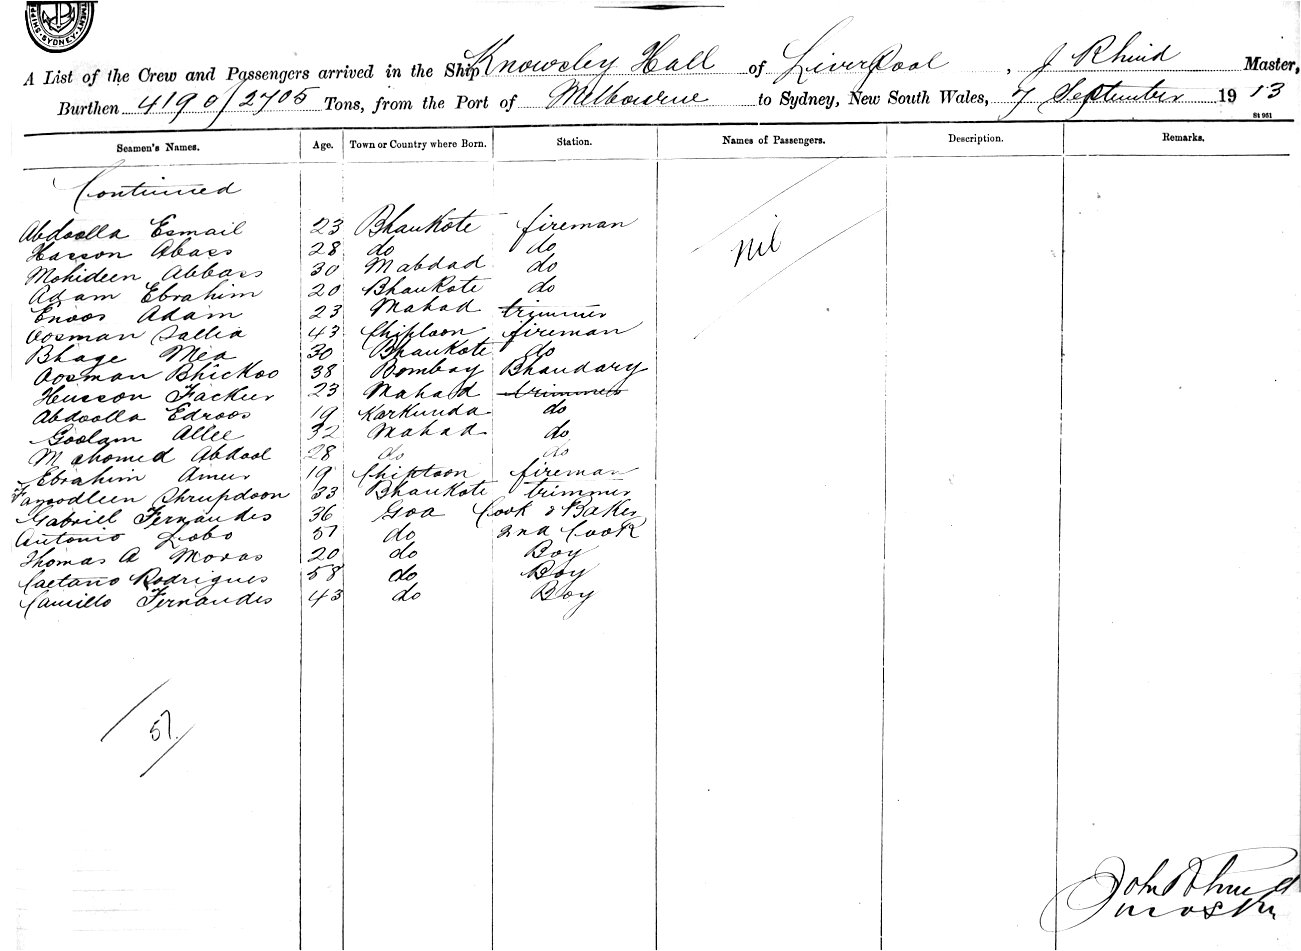 SHIPPING SYDNEY
A List of the Crew and Passengers arrived in the Ship Knowsley Hall of Liverpool, J Rhind Master,
Burthen 4190/2705 Tons, from the Port of Melbourne to Sydney, New South Wales, 7 September 1913
St 961
Seamen's Names. Age. Town or Country where Born. Station. Names of Passengers. Description. Remarks.
Continued
Abdoolla Esmail 23 Bhaukote fireman
Hasson Abass 28 do do
Mohideen Abbass 30 Mabdad do
Adam Ebrahim 20 Bhaukote do
Enoos Adam 23 Mahad trimmer
Oosman Sallia 43 Chiploon fireman
Bhage Mea 30 Bhaukote do
Oosman Bhickoo 38 Bombay Bhandary
Husson Fackur 23 Mahad trimmer
Abdoolla Edroos 19 Karkunda do
Goolam Allee 32 Mahad do
Mahomed Abdool 28 do do
Ebrahim Ameer 19 Chiploon fireman
33 Bhaukote trimmer
Gabriel Fernandes 36 Goa Cook & Baker
Antonio Lobo 51 do 2nd Cook
Thomas A Moras 20 do Boy
Caetano Rodrigues 58 do Boy
Camillo Fernandes 43 do Boy
Nil
57
John Rhind